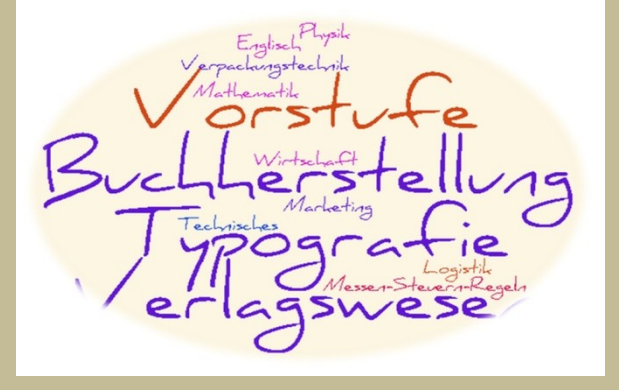 Physik
Englisch
Verpackungstechnik
Mathematik
Vorstufe
Wirtschaft
Buchherstellung
Marketing
Technisches
Typografie
Logistik
Messen-Steuern-Regeln
Verlagswese